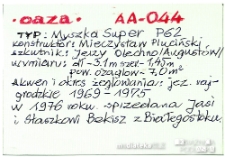 oaza. AA-044
TYP: Myszka Super P62
konstruktor: Mieczysław Pluciński
szkutnik: Jerzy Olechno/Augustów/
wymiary: dł-3.1m szer-1,45m
pow. ożaglow-7,0m²
Akwen i okres żeglowania: jez. raj-
grodzkie 1969-1975
w 1976 roku. sprzedana Jasi
i Staszkowi Bekisz z Białegostoku.